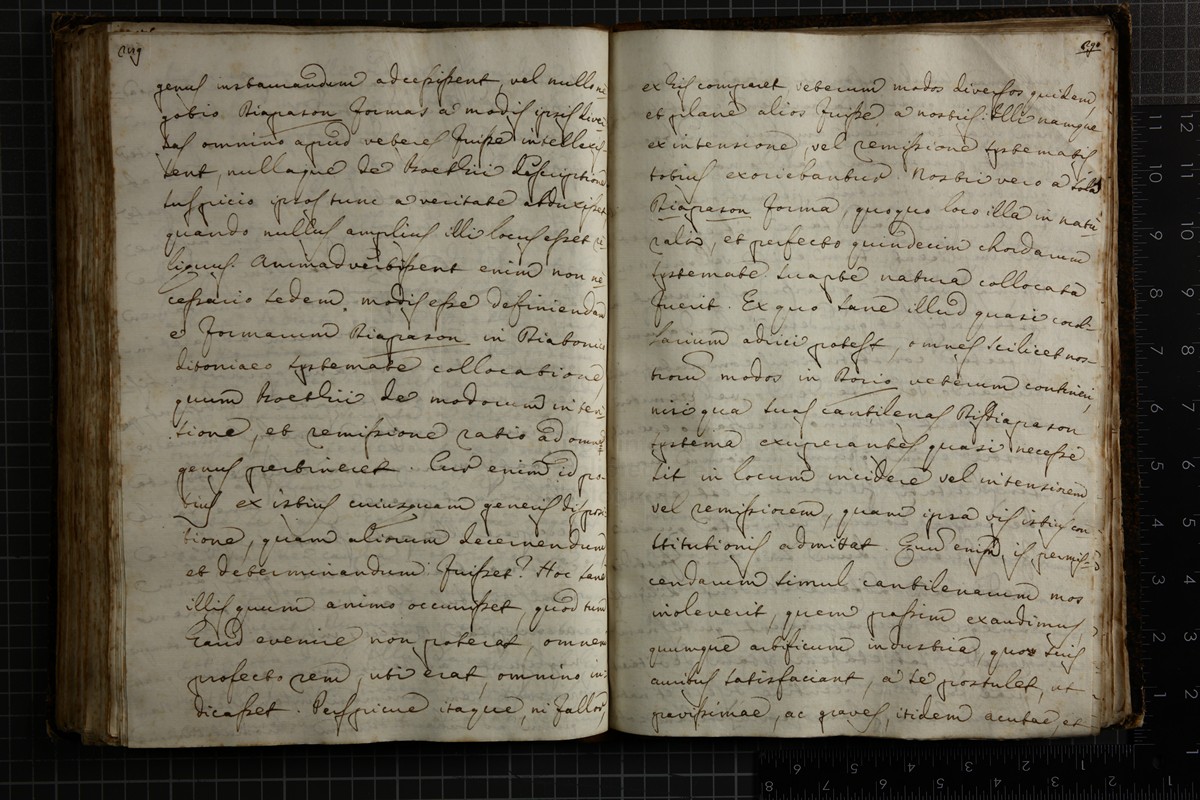 genus instaurandum adcessissent, vel nullo ne
gotio Diapason formas a modis ipsis diver
sas omnino apud veteres fuisse intellexis
sent, nullaque de Boethii descriptione
suspicio ipsos tunc a veritate abduxisset
quando nullus amplius illi locus esset re
liquus. Animadvertissent enim non ne
cessario sedem modis esse definiendam
e formarum Diapason in Diatonico
ditoniaeo systemate collocatione,
quum Boethii de modorum inten
tione, et remissione ratio ad omne
genus pertineret. Cur enim id po
tius ex istius cuiusquam generis disposi
tione, quam aliorum decernendum
et determinandum fuisset? Hoc sane
illis quum animo occurrisset, quod tum
haud evenire non poterat, omnem
profecto rem, uti erat, omnino in
dicasset. Perspicue itaque, ni fallor
ex his comparet veterum modos diversos quidem,
et plane alios fuisse a nostris. Illi namque
ex intensione, vel remissione systematis
totius exoriebantur. Nostri vero a sola
Diapason forma, quoquo loco illa in natu
rali, et perfecto quindecim chordarum
systemate suapte natura collocata
fuerit. Ex quo sane illud quasi corol
larium adiici potest, omnes scilicet nos
trorum modos in Dorio veterum contineri,
nisi qua suas cantilenas Disdiapason
systema exuperantes quasi necesse
sit in locum incidere vel intensiorem
vel remissiorem, quam ipsa vis istius con
stitutionis admittat. Quum enim is permis
cendarum simul cantilenarum mos
inoleverit, quem passim exaudimus,
quumque artificum industria, quo suis
auribus satisfaciant, a se postulet, ut
gravissimae, ac graves, itidem acutae, et